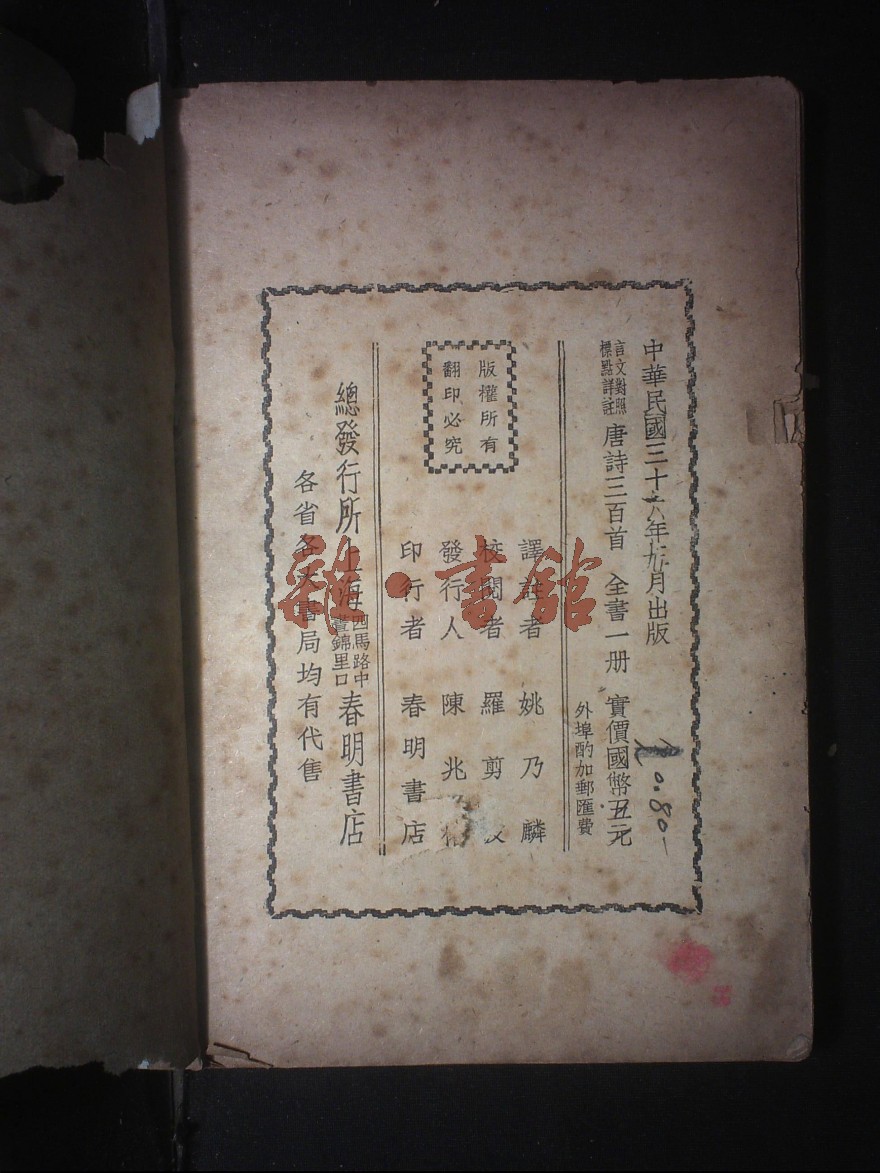 中華民國三十六年九月出版
言文對照
標點詳註
唐詩三百首 全書一册 實價國幣五元
外埠酌加郵匯費
0.80
版權所有
翻印必究
譯註者 姚乃麟
校閱者 羅剪
發行人 陳兆
印行者 春明書店
總發行所上海四馬路中晝錦里口春明書店
各省各大書局均有代售
雜·書館